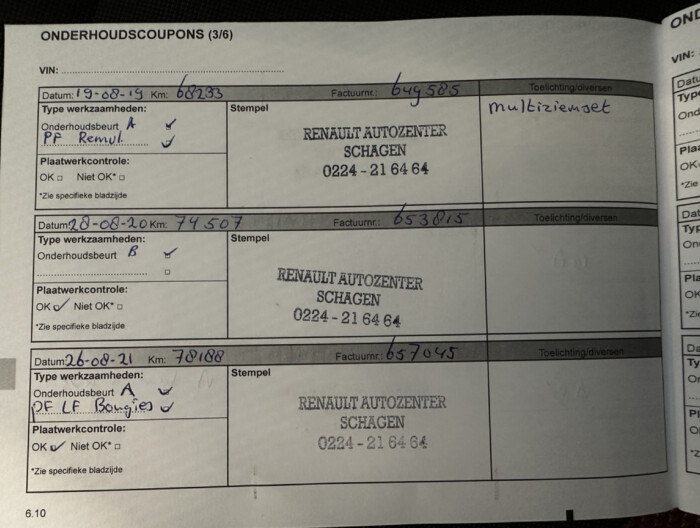 ONDERHOUDSCOUPONS (3/6)
VIN:
Datum: 19-08-19 Km: 68233 Factuurnr.: 649585 Toelichting/diversen
Type werkzaamheden: Stempel multiriemset
Onderhoudsbeurt A
PF Remvl.
RENAULT AUTOZENTER
SCHAGEN
0224 - 21 64 64
Plaatwerkcontrole:
OK Niet OK*
*Zie specifieke bladzijde
Datum 28-08-20 Km: 74507 Factuurnr.: 653815 Toelichting/diversen
Type werkzaamheden: Stempel
Onderhoudsbeurt B
RENAULT AUTOZENTER
SCHAGEN
0224 - 21 64 64
Plaatwerkcontrole:
OK Niet OK*
*Zie specifieke bladzijde
Datum 26-08-21 Km: 78188 Factuurnr.: 657045 Toelichting/diversen
Type werkzaamheden: Stempel
Onderhoudsbeurt A
LF Bougies
RENAULT AUTOZENTER
SCHAGEN
0224 - 21 64 64
Plaatwerkcontrole:
OK Niet OK*
*Zie specifieke bladzijde
6.10
VIN: